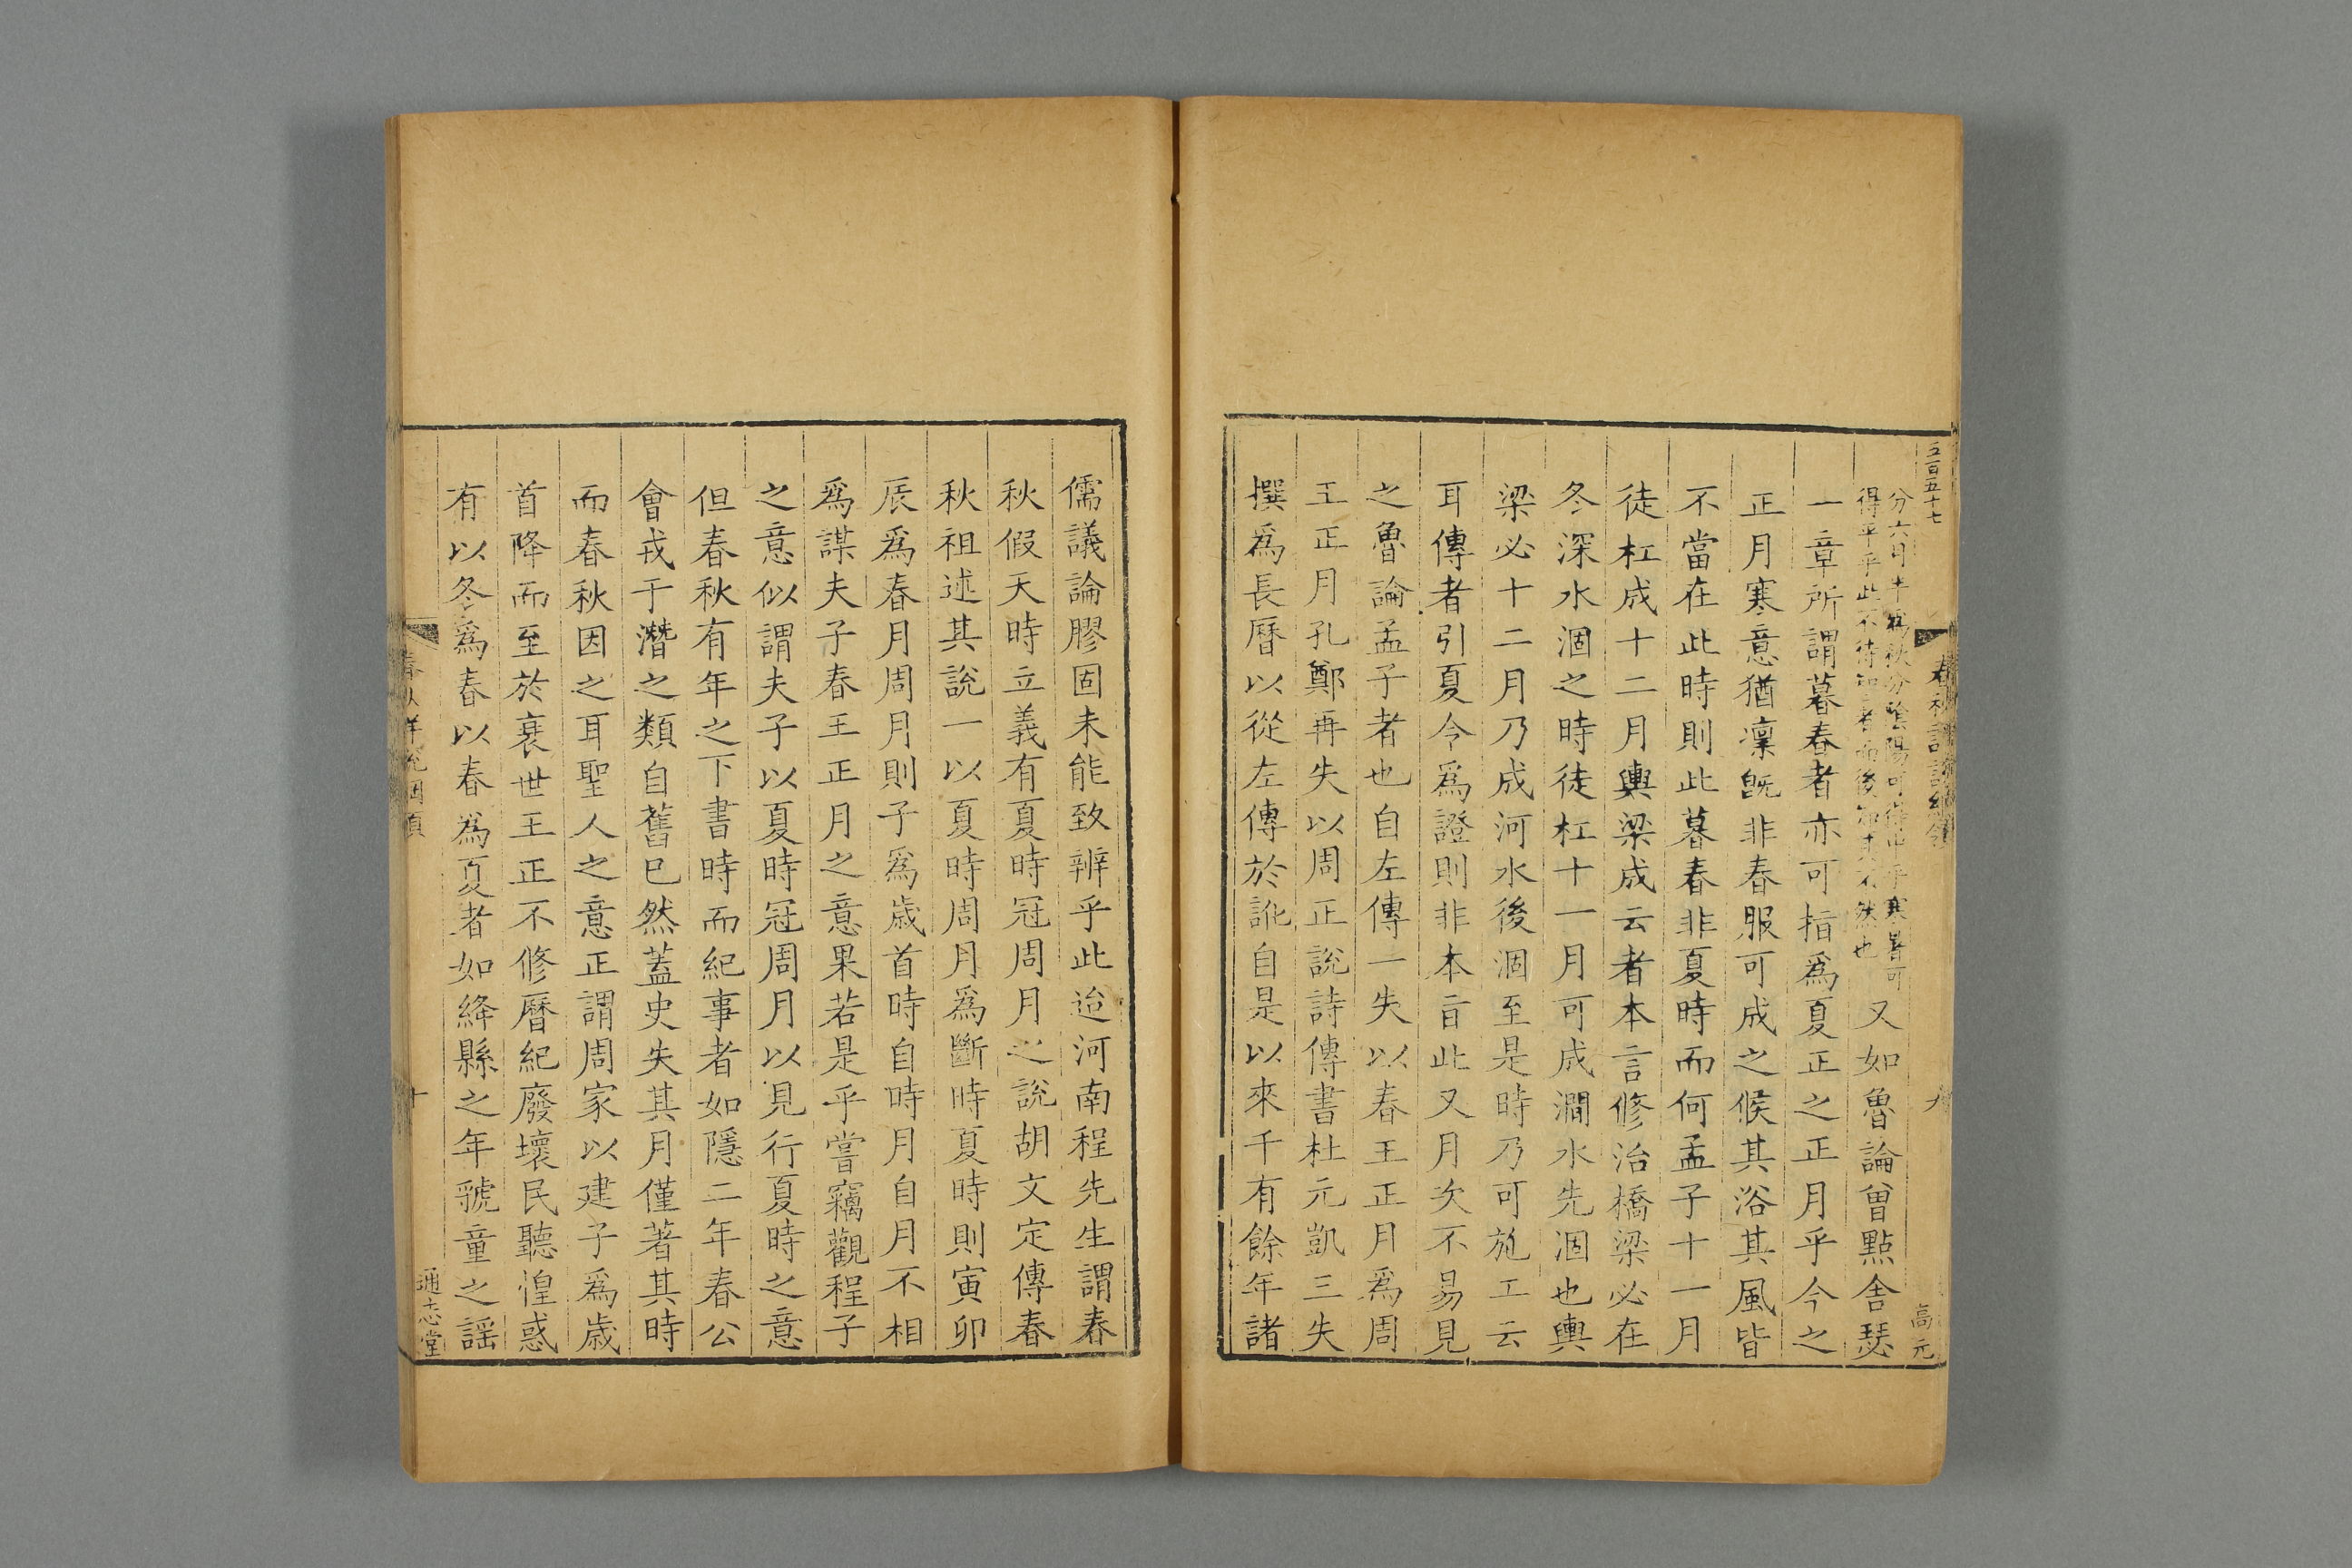 五百五十七
春秋詳說綱領
九
高元
分六月半為秋分陰陽可得中乎寒暑可
得平乎此不待知者而後知其不然也
又如魯論曾點舍瑟
一章所謂暮春者亦可指為夏正之正月乎今之
正月寒意猶凜旣非春服可成之候其浴其風皆
不當在此時則此暮春非夏時而何孟子十一月
徒杠成十二月輿梁成云者本言修治橋梁必在
冬深水涸之時徒杠十一月可成澗水先涸也輿
梁必十二月乃成河水後涸至是時乃可施工云
耳傳者引夏令為證則非本旨此又月次不易見
之魯論孟子者也自左傳一失以春王正月為周
王正月孔鄭再失以周正說詩傳書杜元凱三失
撰為長曆以從左傳於訛自是以來千有餘年諸
儒議論膠固未能致辨乎此迨河南程先生謂春
秋假天時立義有夏時冠周月之說胡文定傳春
秋祖述其說一以夏時周月為斷時夏時則寅卯
辰為春月周月則子為歲首時自時月自月不相
為謀夫子春王正月之意果若是乎嘗竊觀程子
之意似謂夫子以夏時冠周月以見行夏時之意
但春秋有年之下書時而紀事者如隱二年春公
會戎于潛之類自舊已然蓋史失其月僅著其時
而春秋因之耳聖人之意正謂周家以建子為歲
首降而至於衰世王正不修曆紀廢壞民聽惶惑
有以冬為春以春為夏者如絳縣之年虢童之謡
春秋詳說綱領
十
通志堂